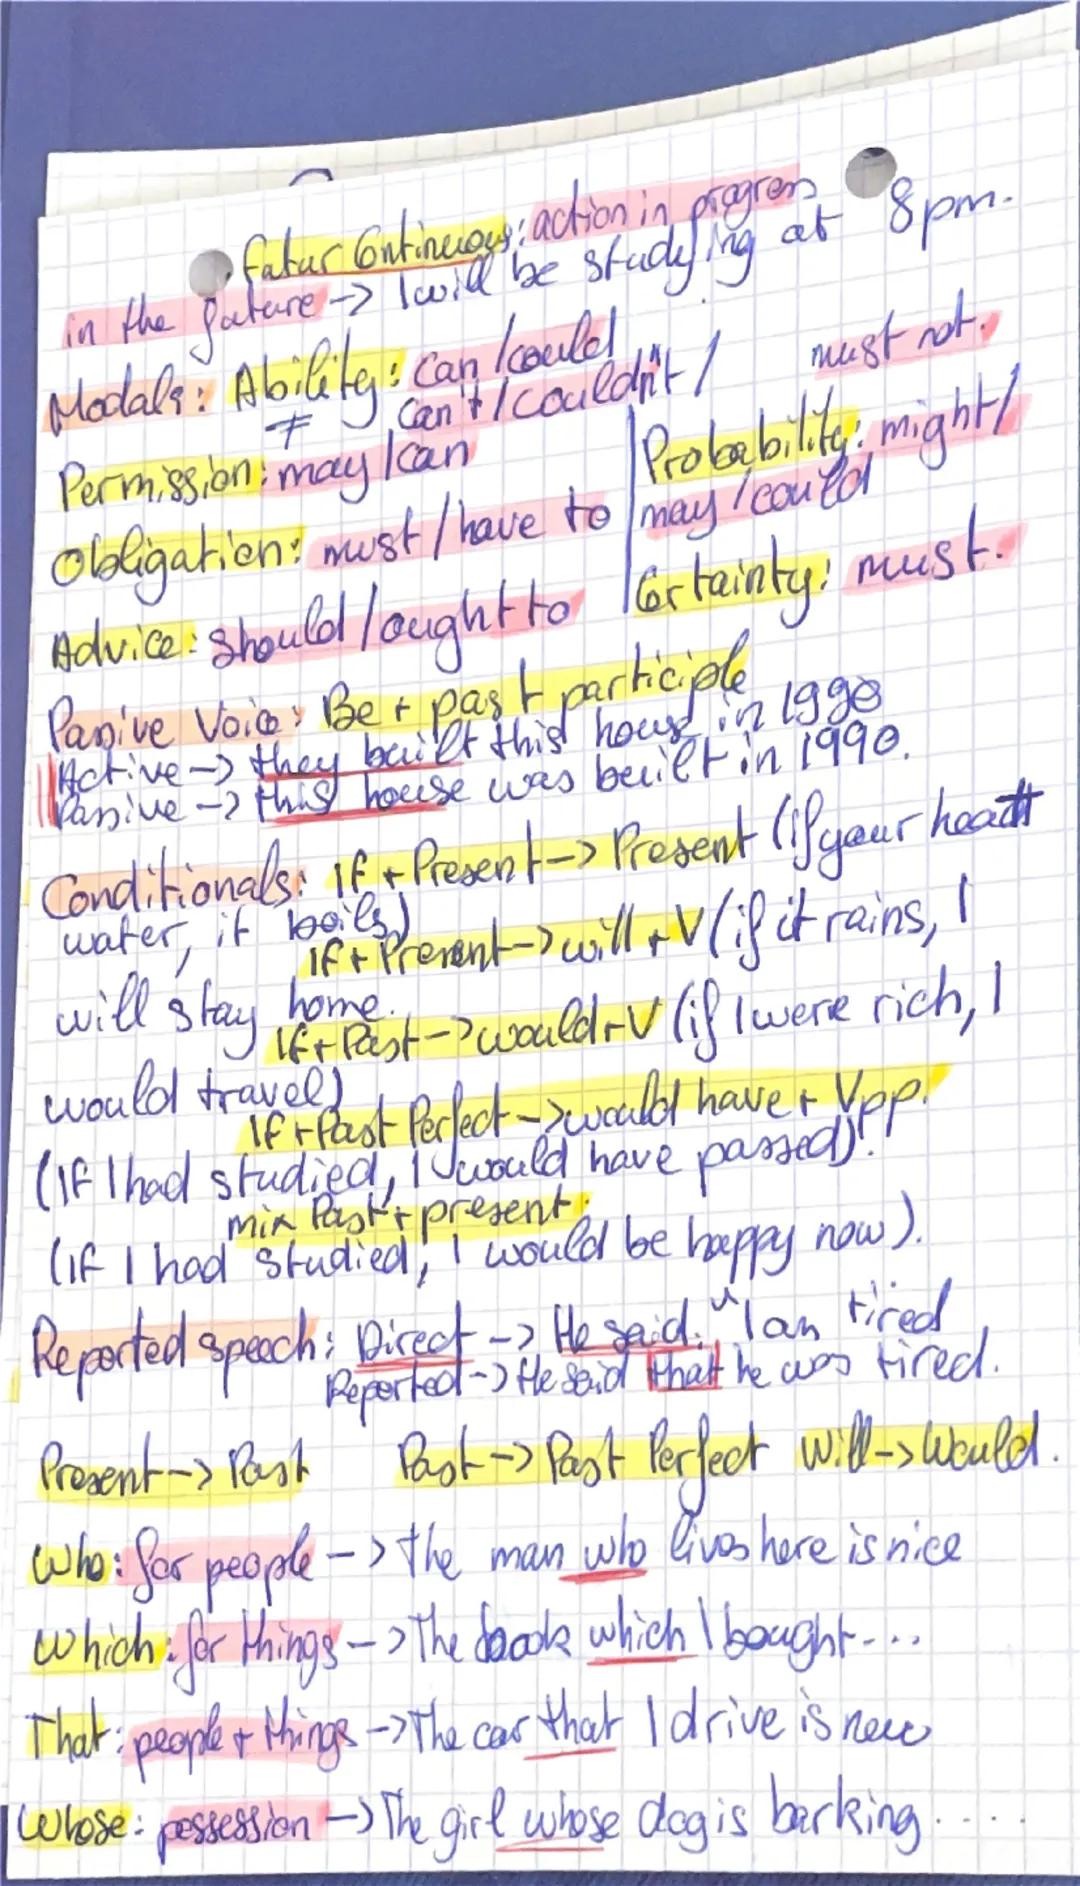 . Futur Continuous: action in progress
in the future -> I will be studying at 8pm.
Modals: Ability: can/could
≠ can't/couldn't / must not.
Permission: may/can
Obligation: must/have to
Advice: should/ought to
Probability: might/
may/could
Certainty: must.
Passive Voice: Be + past participle
Active -> they built this house in 1990
Passive -> this house was built in 1990.
Conditionals: If + Present -> Present (if your heat
water, it boils)
If + Present -> will + V (if it rains, I
will stay home.
If + Past -> would + V (if I were rich, I
would travel)
If + Past Perfect -> would have + Vpp.
(If I had studied, I would have passed)!
mix Past + present:
(If I had studied, I would be happy now).
Reported speech: Direct -> He said: "I am tired
Reported -> He said that he was tired.
Present -> Past Past -> Past Perfect Will -> Would.
Who: for people -> the man who lives here is nice
Which: for things -> The book which I bought....
That: people + things -> The car that I drive is new
Whose: possession -> The girl whose dog is barking.....